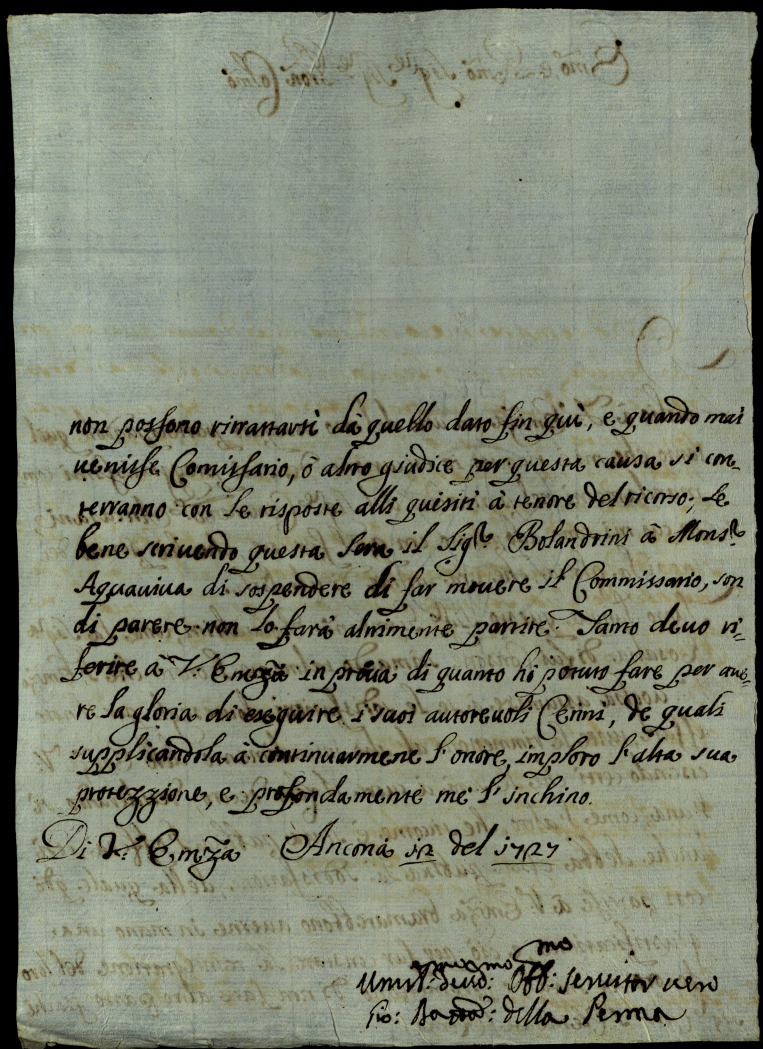 non possono ritrattarsi da quello dato fin qui, e quando mai
venisse Comissario, ò altro giudice per questa causa si con-
terranno con le risposte alli quisiti à tenore del ricorso; se
bene scrivendo questa sera il Sig.r Bolandrini à Mons.r
Aquaviva di sospendere di far movere il Commissario, son
di parere non lo farà altrimente partire. Tanto devo ri-
ferire à V.ra Emza in prova di quanto hò potuto fare per ave-
re la gloria di eseguire i suoi autorevoli Cenni, de quali
supplicandola à continuarmene l'onore, imploro l'alta sua
protezzione, e profondamente me l'inchino.
Di V.ra Emza Ancona 12 del 1727
Umil.mo Dev.mo Obb.mo servitor vero
Gio: Batta: della Penna